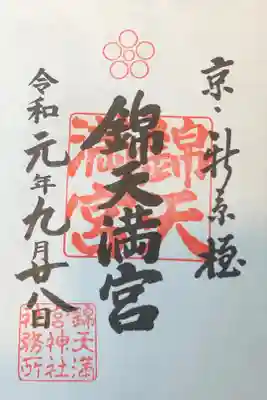 京・新京極
錦天満宮
錦天
満宮
令和元年九月廿八日
錦天満
宮神社
神務所